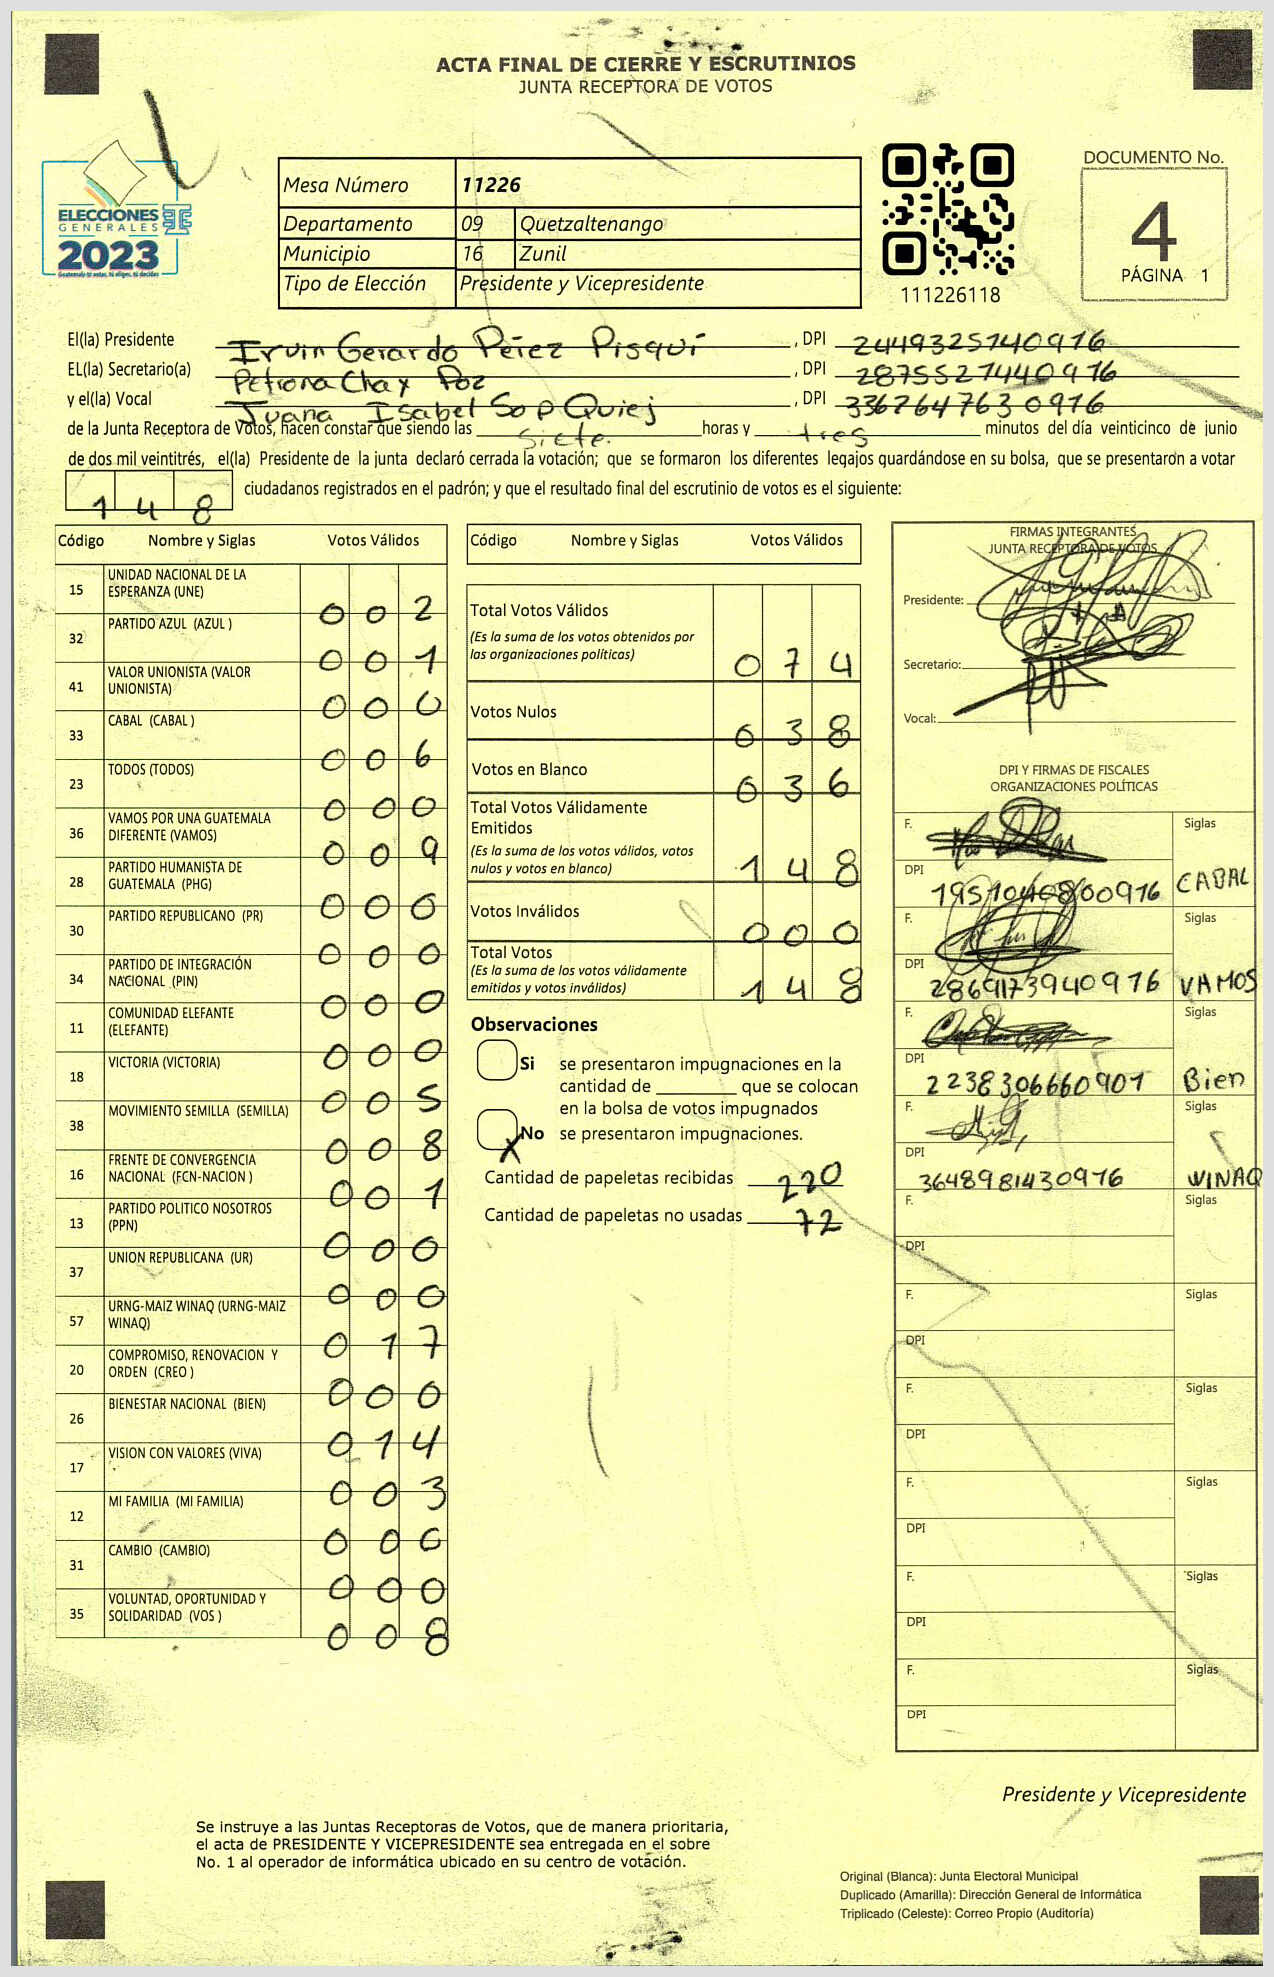 ACTA FINAL DE CIERRE Y ESCRUTINIOS
JUNTA RECEPTORA DE VOTOS
ELECCIONES
GENERALES
2023
Mesa Número 11226
Departamento 09 Quetzaltenango
Municipio 16 Zunil
Tipo de Elección Presidente y Vicepresidente
111226118
DOCUMENTO No.
4
PÁGINA 1
El(la) Presidente Irvin Gerardo Pérez Pisquí , DPI 2449325740916
EL(la) Secretario(a) Petrona Chax Poz , DPI 2875527440916
y el(la) Vocal Juana Isabel Sop Quiej , DPI 3362647630916
de la Junta Receptora de Votos, hacen constar que siendo las siete. horas y tres minutos del día veinticinco de junio
de dos mil veintitrés, el(la) Presidente de la junta declaró cerrada la votación; que se formaron los diferentes legajos guardándose en su bolsa, que se presentaron a votar
148 ciudadanos registrados en el padrón; y que el resultado final del escrutinio de votos es el siguiente:
Código Nombre y Siglas Votos Válidos
15 UNIDAD NACIONAL DE LA ESPERANZA (UNE) 002
32 PARTIDO AZUL (AZUL ) 001
41 VALOR UNIONISTA (VALOR UNIONISTA) 000
33 CABAL (CABAL ) 006
23 TODOS (TODOS) 000
36 VAMOS POR UNA GUATEMALA DIFERENTE (VAMOS) 009
28 PARTIDO HUMANISTA DE GUATEMALA (PHG) 000
30 PARTIDO REPUBLICANO (PR) 000
34 PARTIDO DE INTEGRACIÓN NACIONAL (PIN) 000
11 COMUNIDAD ELEFANTE (ELEFANTE) 000
18 VICTORIA (VICTORIA) 005
38 MOVIMIENTO SEMILLA (SEMILLA) 008
16 FRENTE DE CONVERGENCIA NACIONAL (FCN-NACION ) 001
13 PARTIDO POLITICO NOSOTROS (PPN) 000
37 UNION REPUBLICANA (UR) 000
57 URNG-MAIZ WINAQ (URNG-MAIZ WINAQ) 017
20 COMPROMISO, RENOVACION Y ORDEN (CREO ) 000
26 BIENESTAR NACIONAL (BIEN) 014
17 VISION CON VALORES (VIVA) 003
12 MI FAMILIA (MI FAMILIA) 000
31 CAMBIO (CAMBIO) 000
35 VOLUNTAD, OPORTUNIDAD Y SOLIDARIDAD (VOS ) 008
Código Nombre y Siglas Votos Válidos
Total Votos Válidos
(Es la suma de los votos obtenidos por
las organizaciones políticas) 074
Votos Nulos 038
Votos en Blanco 036
Total Votos Válidamente
Emitidos
(Es la suma de los votos válidos, votos
nulos y votos en blanco) 148
Votos Inválidos 000
Total Votos
(Es la suma de los votos válidamente
emitidos y votos inválidos) 148
Observaciones
Si se presentaron impugnaciones en la
cantidad de ________ que se colocan
en la bolsa de votos impugnados
X No se presentaron impugnaciones.
Cantidad de papeletas recibidas 220
Cantidad de papeletas no usadas 72
FIRMAS INTEGRANTES
JUNTA RECEPTORA DE VOTOS
Presidente:
Secretario:
Vocal:
DPI Y FIRMAS DE FISCALES
ORGANIZACIONES POLÍTICAS
F. Siglas
DPI 1951040800916 CABAL
F. Siglas
DPI 2869173940976 VAMOS
F. Siglas
DPI 2238306660901 Bien
F. Siglas
DPI 3648981430916 WINAQ
F. Siglas
DPI
F. Siglas
DPI
F. Siglas
DPI
F. Siglas
DPI
F. Siglas
DPI
F. Siglas
DPI
Presidente y Vicepresidente
Se instruye a las Juntas Receptoras de Votos, que de manera prioritaria,
el acta de PRESIDENTE Y VICEPRESIDENTE sea entregada en el sobre
No. 1 al operador de informática ubicado en su centro de votación.
Original (Blanca): Junta Electoral Municipal
Duplicado (Amarilla): Dirección General de Informática
Triplicado (Celeste): Correo Propio (Auditoría)